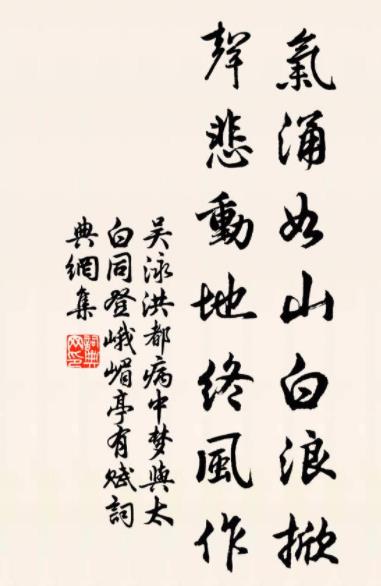 氣涌如山白浪掀
聲悲動地終風作
吴泳洪都病中梦與太
白同登峨嵋亭有赋詞
典網集
詞典网印